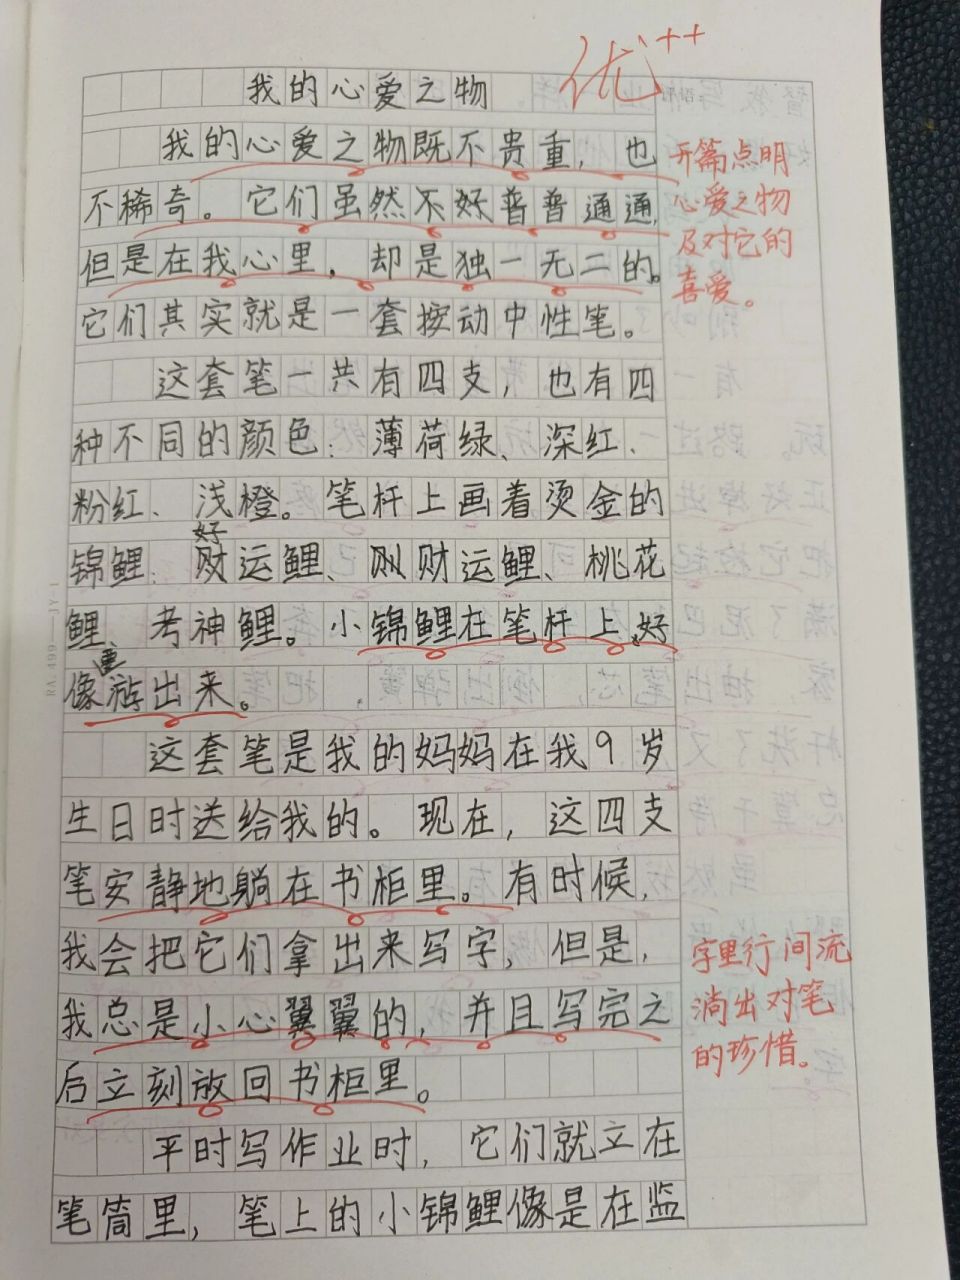 优++
我的心爱之物
我的心爱之物既不贵重，也
不稀奇。它们虽然不好普普通通，
但是在我心里，却是独一无二的。
它们其实就是一套按动中性笔。
这套笔一共有四支，也有四
种不同的颜色：薄荷绿、深红、
粉红、浅橙。笔杆上画着烫金的
好
锦鲤：财运鲤、财运鲤、桃花
鲤、考神鲤。小锦鲤在笔杆上，好
像要游出来。
这套笔是我的妈妈在我9岁
生日时送给我的。现在，这四支
笔安静地躺在书柜里。有时候，
我会把它们拿出来写字，但是，
我总是小心翼翼的，并且写完之
后立刻放回书柜里。
平时写作业时，它们就立在
笔筒里，笔上的小锦鲤像是在监
开篇点明
心爱之物
及对它的
喜爱。
字里行间流
淌出对笔
的珍惜。
RA·499—JY·1